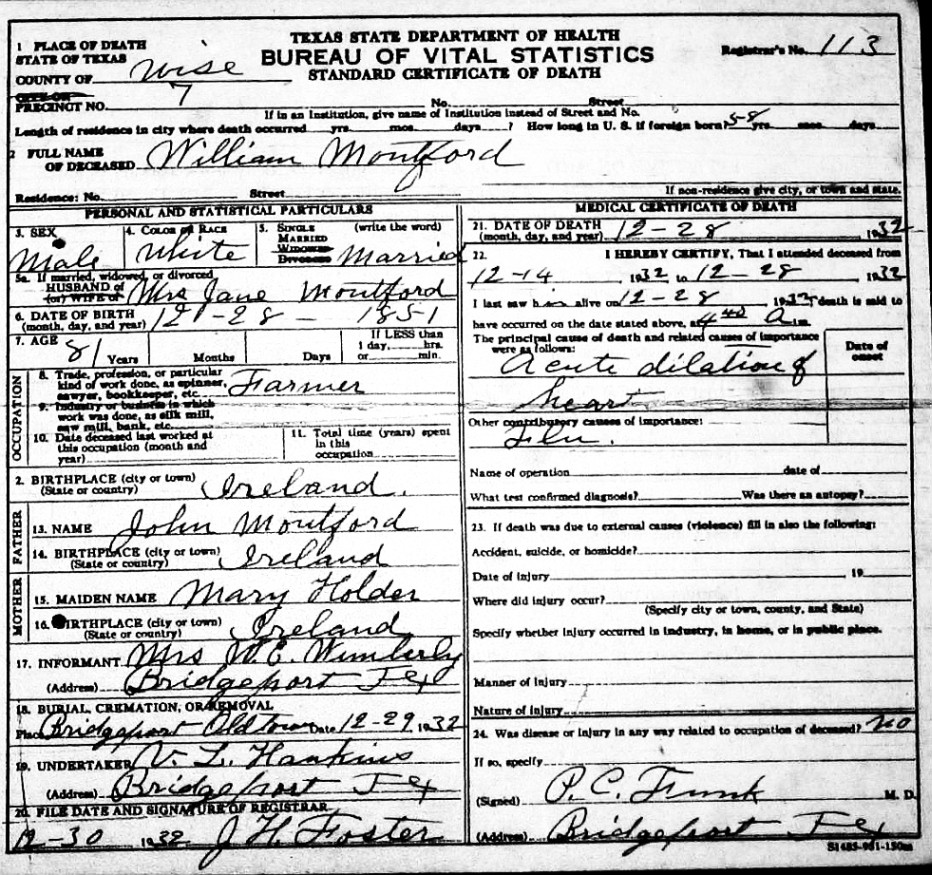 TEXAS STATE DEPARTMENT OF HEALTH
BUREAU OF VITAL STATISTICS
STANDARD CERTIFICATE OF DEATH
Registrar's No. 113
1 PLACE OF DEATH
STATE OF TEXAS
COUNTY OF Wise
CITY OR
PRECINCT NO. 7 No. Street
If in an Institution, give name of Institution instead of Street and No.
Length of residence in city where death occurred yrs. mos. days ? How long in U. S. if foreign born? 58 yrs. mos. days
2 FULL NAME
OF DECEASED William Montford
Residence: No. Street If non-residence give city, or town and state.
PERSONAL AND STATISTICAL PARTICULARS
3. SEX Male
4. COLOR OR RACE White
5. SINGLE MARRIED WIDOWED DIVORCED (write the word) Married
5a. If married, widowed, or divorced
HUSBAND of
(or) WIFE of Mrs Jane Montford
6. DATE OF BIRTH
(month, day, and year) 12-28-1851
7. AGE 81 Years Months Days If LESS than 1 day, hrs. or min.
OCCUPATION
8. Trade, profession, or particular
kind of work done, as spinner,
sawyer, bookkeeper, etc. Farmer
9. Industry or business in which
work was done, as silk mill,
saw mill, bank, etc.
10. Date deceased last worked at
this occupation (month and
year)
11. Total time (years) spent
in this
occupation
2. BIRTHPLACE (city or town)
(State or country) Ireland.
FATHER
13. NAME John Montford
14. BIRTHPLACE (city or town)
(State or country) Ireland
MOTHER
15. MAIDEN NAME Mary Holder
16. BIRTHPLACE (city or town)
(State or country) Ireland
17. INFORMANT Mrs W. E. Wimberly
(Address) Bridgeport Tex
18. BURIAL, CREMATION, OR REMOVAL
Place Bridgeport Oldtown Date 12-29, 1932
19. UNDERTAKER V. L. Hankins
(Address) Bridgeport Tex
20. FILE DATE AND SIGNATURE OF REGISTRAR
12-30 1932 J H. Foster
MEDICAL CERTIFICATE OF DEATH
21. DATE OF DEATH
(month, day, and year) 12-28, 1932
22. I HEREBY CERTIFY, That I attended deceased from
12-14 1932 to 12-28, 1932
I last saw h alive on 12-28, 1932, death is said to
have occurred on the date stated above, at 4 40 A.m.
The principal cause of death and related causes of importance
were as follows:
Date of onset
Acute dilation of
heart
Other contributory causes of importance:
Flu.
Name of operation date of
What test confirmed diagnosis? Was there an autopsy?
23. If death was due to external causes (violence) fill in also the following:
Accident, suicide, or homicide?
Date of injury 19
Where did injury occur?
(Specify city or town, county, and State)
Specify whether injury occurred in industry, in home, or in public place.
Manner of injury
Nature of injury
24. Was disease or injury in any way related to occupation of deceased? no
If so, specify
(Signed) P. C. Funk M. D.
(Address) Bridgeport Tex